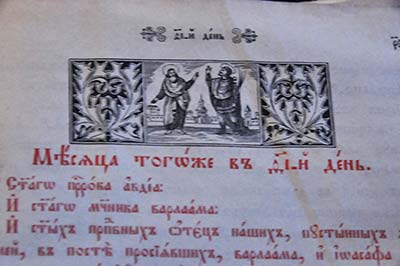 д҃і-й де́нь
Мцⷭ҇ѧца тогѡ́же въ д҃і-й де́нь.
Ст҃а́гѡ прⷪ҇ро́ка а҆вді́а:
И҆ ст҃а́гѡ мч҃ника варлаа́ма:
И҆ ст҃ы́хъ прпⷣбныхъ ѻ҆тє́цъ на́шихъ, пꙋсты́нныхъ
въ постѣ̀ просїѧ́вшихъ, варлаа́ма, и҆ і҆ѡаса́фа